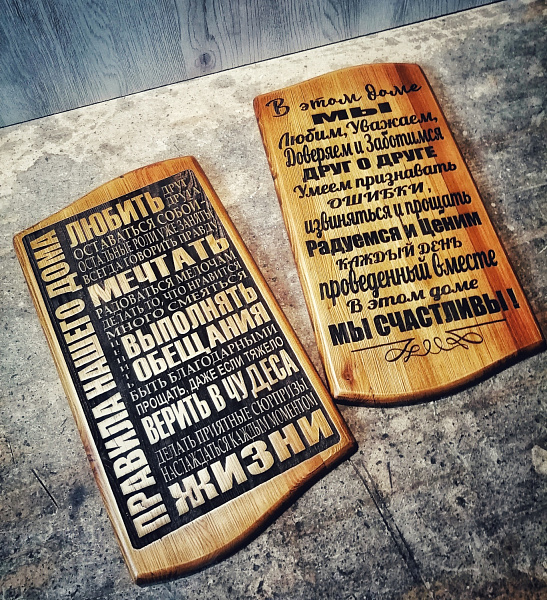 ПРАВИЛА НАШЕГО ДОМА
ЛЮБИТЬ ДРУГ ДРУГА
ОСТАВАТЬСЯ СОБОЙ
ОСТАЛЬНЫЕ РОЛИ УЖЕ ЗАНЯТЫ
ВСЕГДА ГОВОРИТЬ ПРАВДУ
МЕЧТАТЬ
РАДОВАТЬСЯ МЕЛОЧАМ
ДЕЛАТЬ ТО, ЧТО НРАВИТСЯ
МНОГО СМЕЯТЬСЯ
ВЫПОЛНЯТЬ
ОБЕЩАНИЯ
БЫТЬ БЛАГОДАРНЫМИ
ПРОЩАТЬ, ДАЖЕ ЕСЛИ ТЯЖЕЛО
ВЕРИТЬ В ЧУДЕСА
ДЕЛАТЬ ПРИЯТНЫЕ СЮРПРИЗЫ
НАСЛАЖДАТЬСЯ КАЖДЫМ МОМЕНТОМ
ЖИЗНИ
В этом доме
МЫ
Любим, Уважаем,
Доверяем и Заботимся
ДРУГ О ДРУГЕ
Умеем признавать
ОШИБКИ,
извиняться и прощать
Радуемся и Ценим
КАЖДЫЙ ДЕНЬ
проведенный вместе
В этом доме
МЫ СЧАСТЛИВЫ!